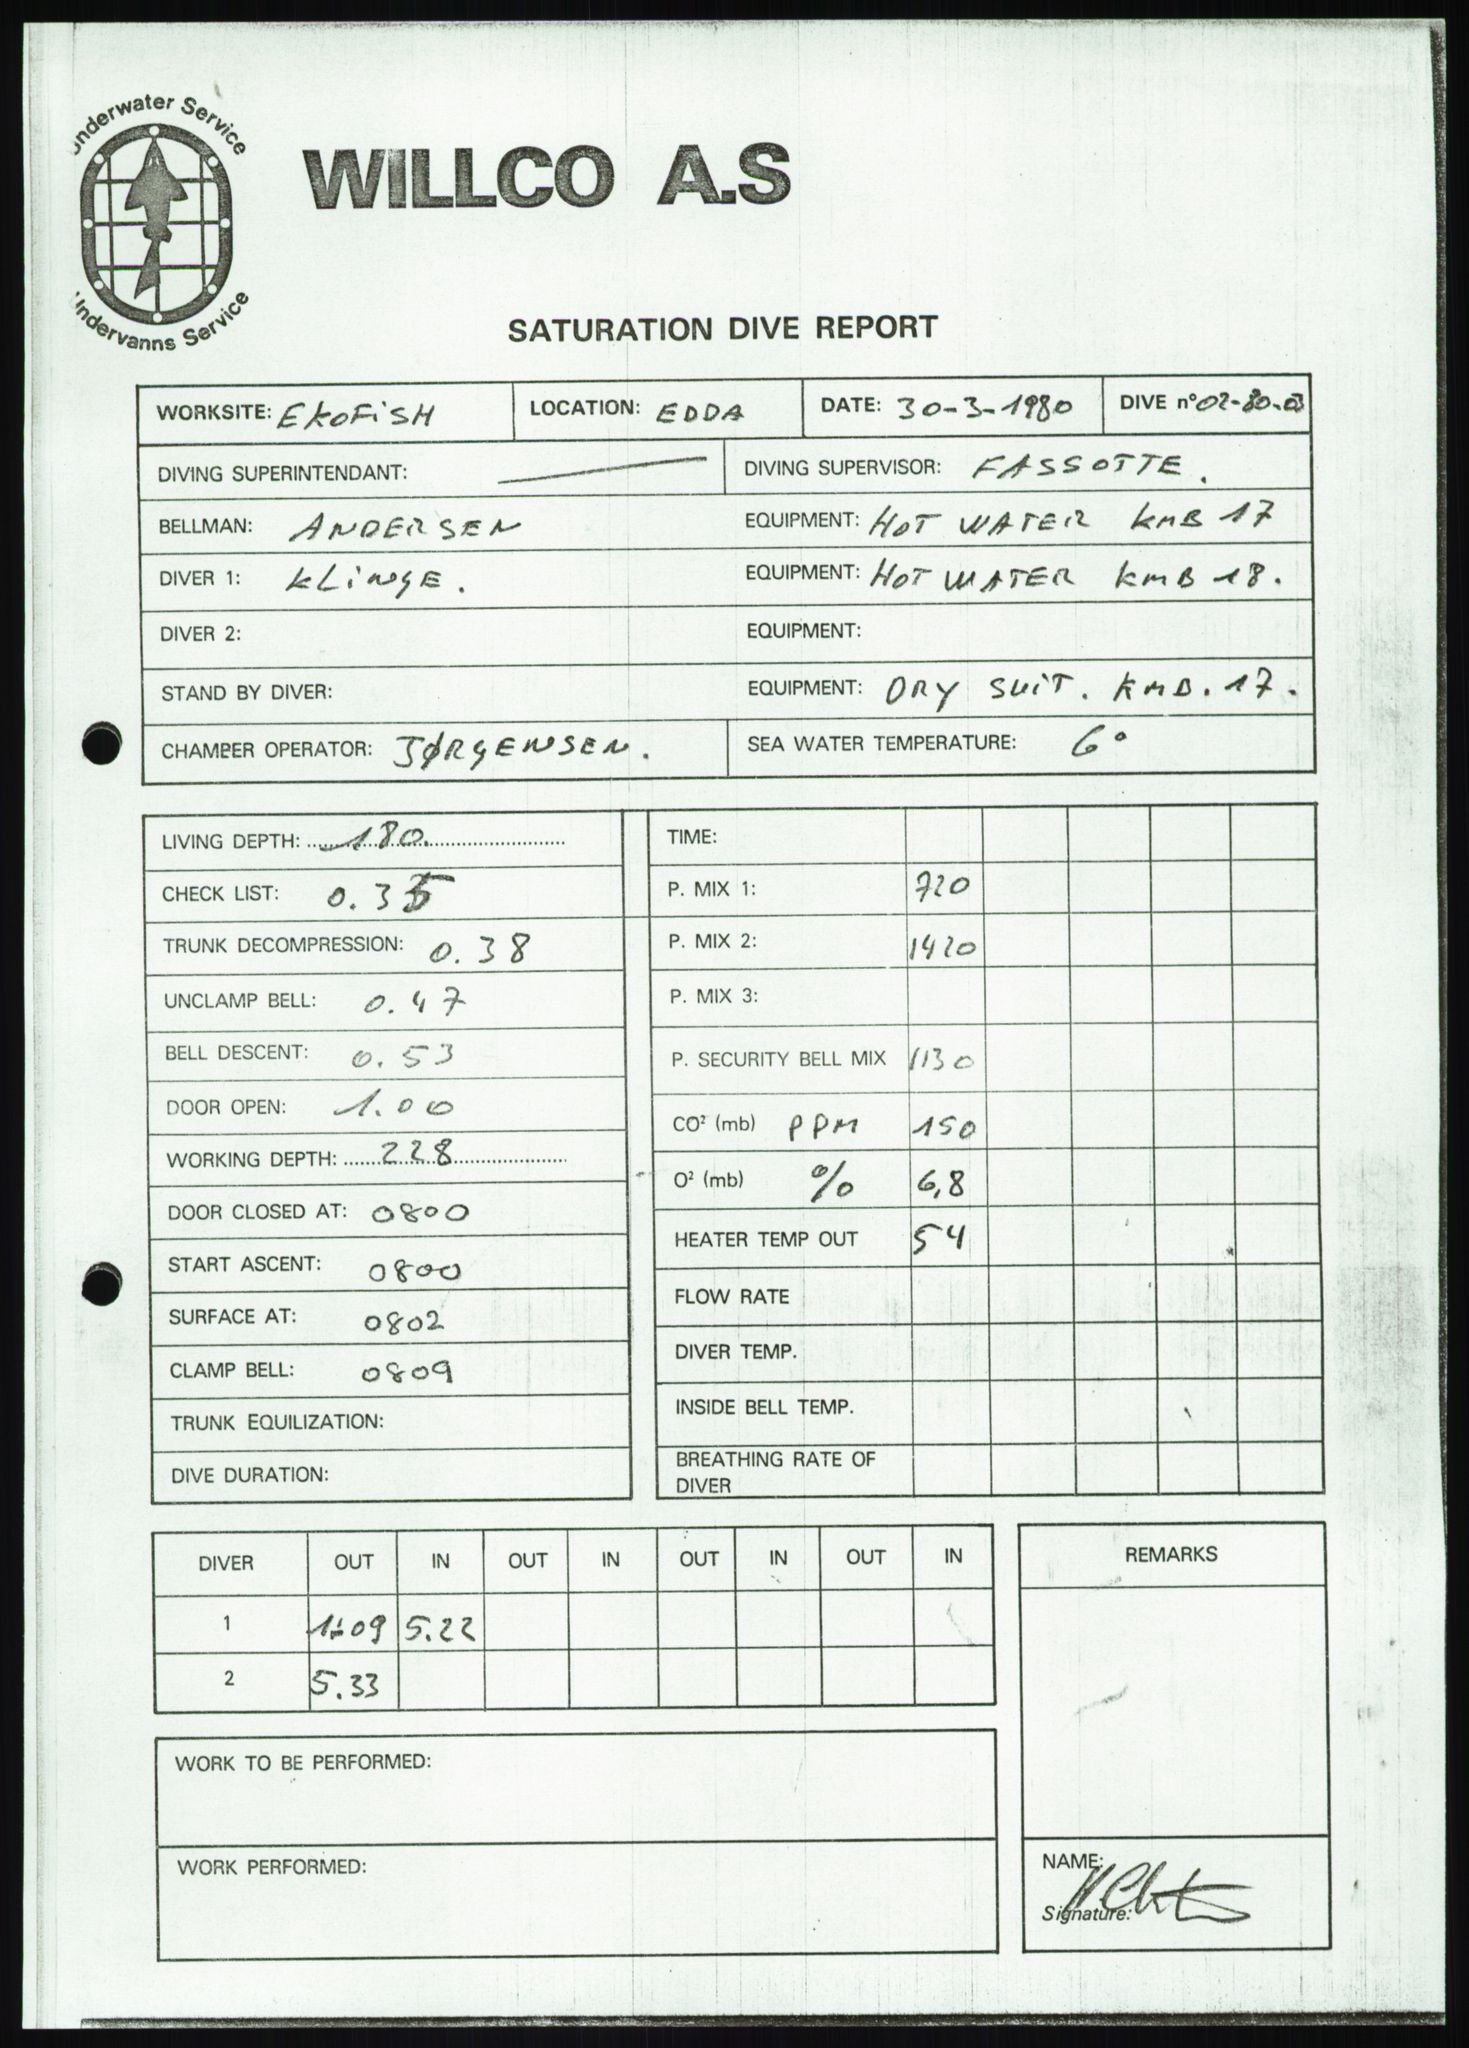 Underwater Service
WILLCO A.S
Undervanns Service
SATURATION DIVE REPORT
WORKSITE: EKOFiSH LOCATION: EDDA DATE: 30-3-1980 DIVE n° 02-80-03
DIVING SUPERINTENDANT: DIVING SUPERVISOR: FASSOTTE.
BELLMAN: ANDERSEN EQUIPMENT: HOT WATER KMB 17
DIVER 1: KLiNGE. EQUIPMENT: HOT WATER KMB 18.
DIVER 2: EQUIPMENT:
STAND BY DIVER: EQUIPMENT: DRY SUiT. KMB. 17.
CHAMBER OPERATOR: JØRGENSEN. SEA WATER TEMPERATURE: 6°
LIVING DEPTH: 180.
CHECK LIST: 0.35
TRUNK DECOMPRESSION: 0.38
UNCLAMP BELL: 0.47
BELL DESCENT: 0.53
DOOR OPEN: 1.00
WORKING DEPTH: 228
DOOR CLOSED AT: 0800
START ASCENT: 0800
SURFACE AT: 0802
CLAMP BELL: 0809
TRUNK EQUILIZATION:
DIVE DURATION:
TIME:
P. MIX 1: 720
P. MIX 2: 1420
P. MIX 3:
P. SECURITY BELL MIX 1130
CO² (mb) PPM 150
O² (mb) % 6,8
HEATER TEMP OUT 54
FLOW RATE
DIVER TEMP.
INSIDE BELL TEMP.
BREATHING RATE OF
DIVER
DIVER OUT IN OUT IN OUT IN OUT IN
1 1:09 5.22
2 5.33
REMARKS
WORK TO BE PERFORMED:
WORK PERFORMED:
NAME:
Signature: